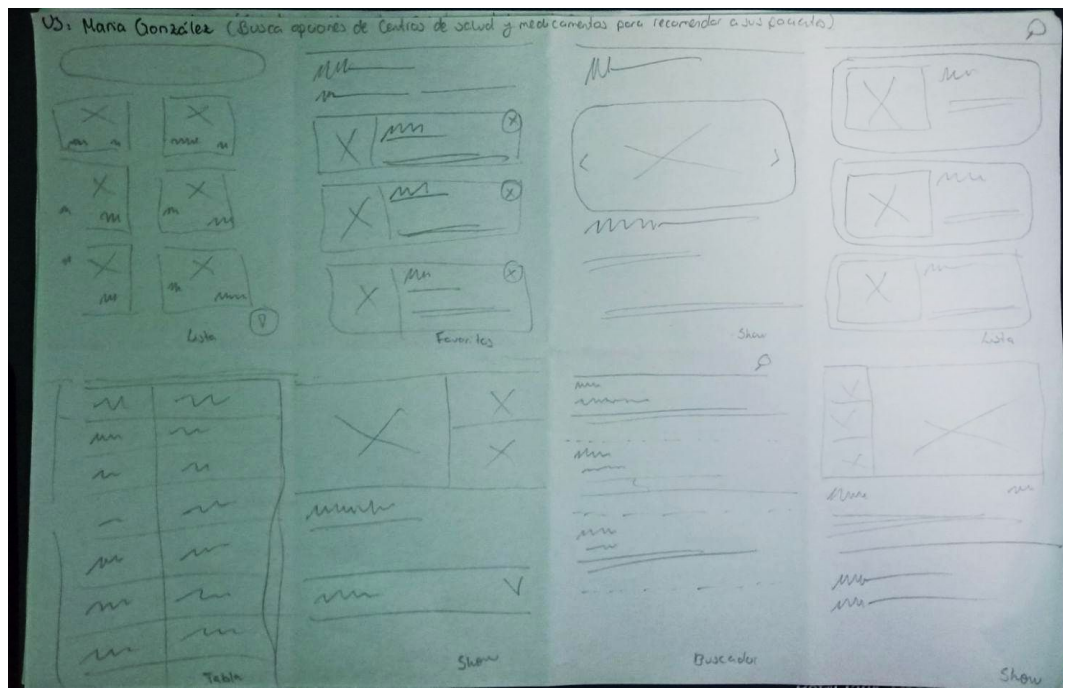 U3: María González (Busca opciones de Centros de salud y medicamentos para recomendar a sus pacientes)
Lista
Favoritos
Show
Lista
Tabla
Show
Buscador
Show